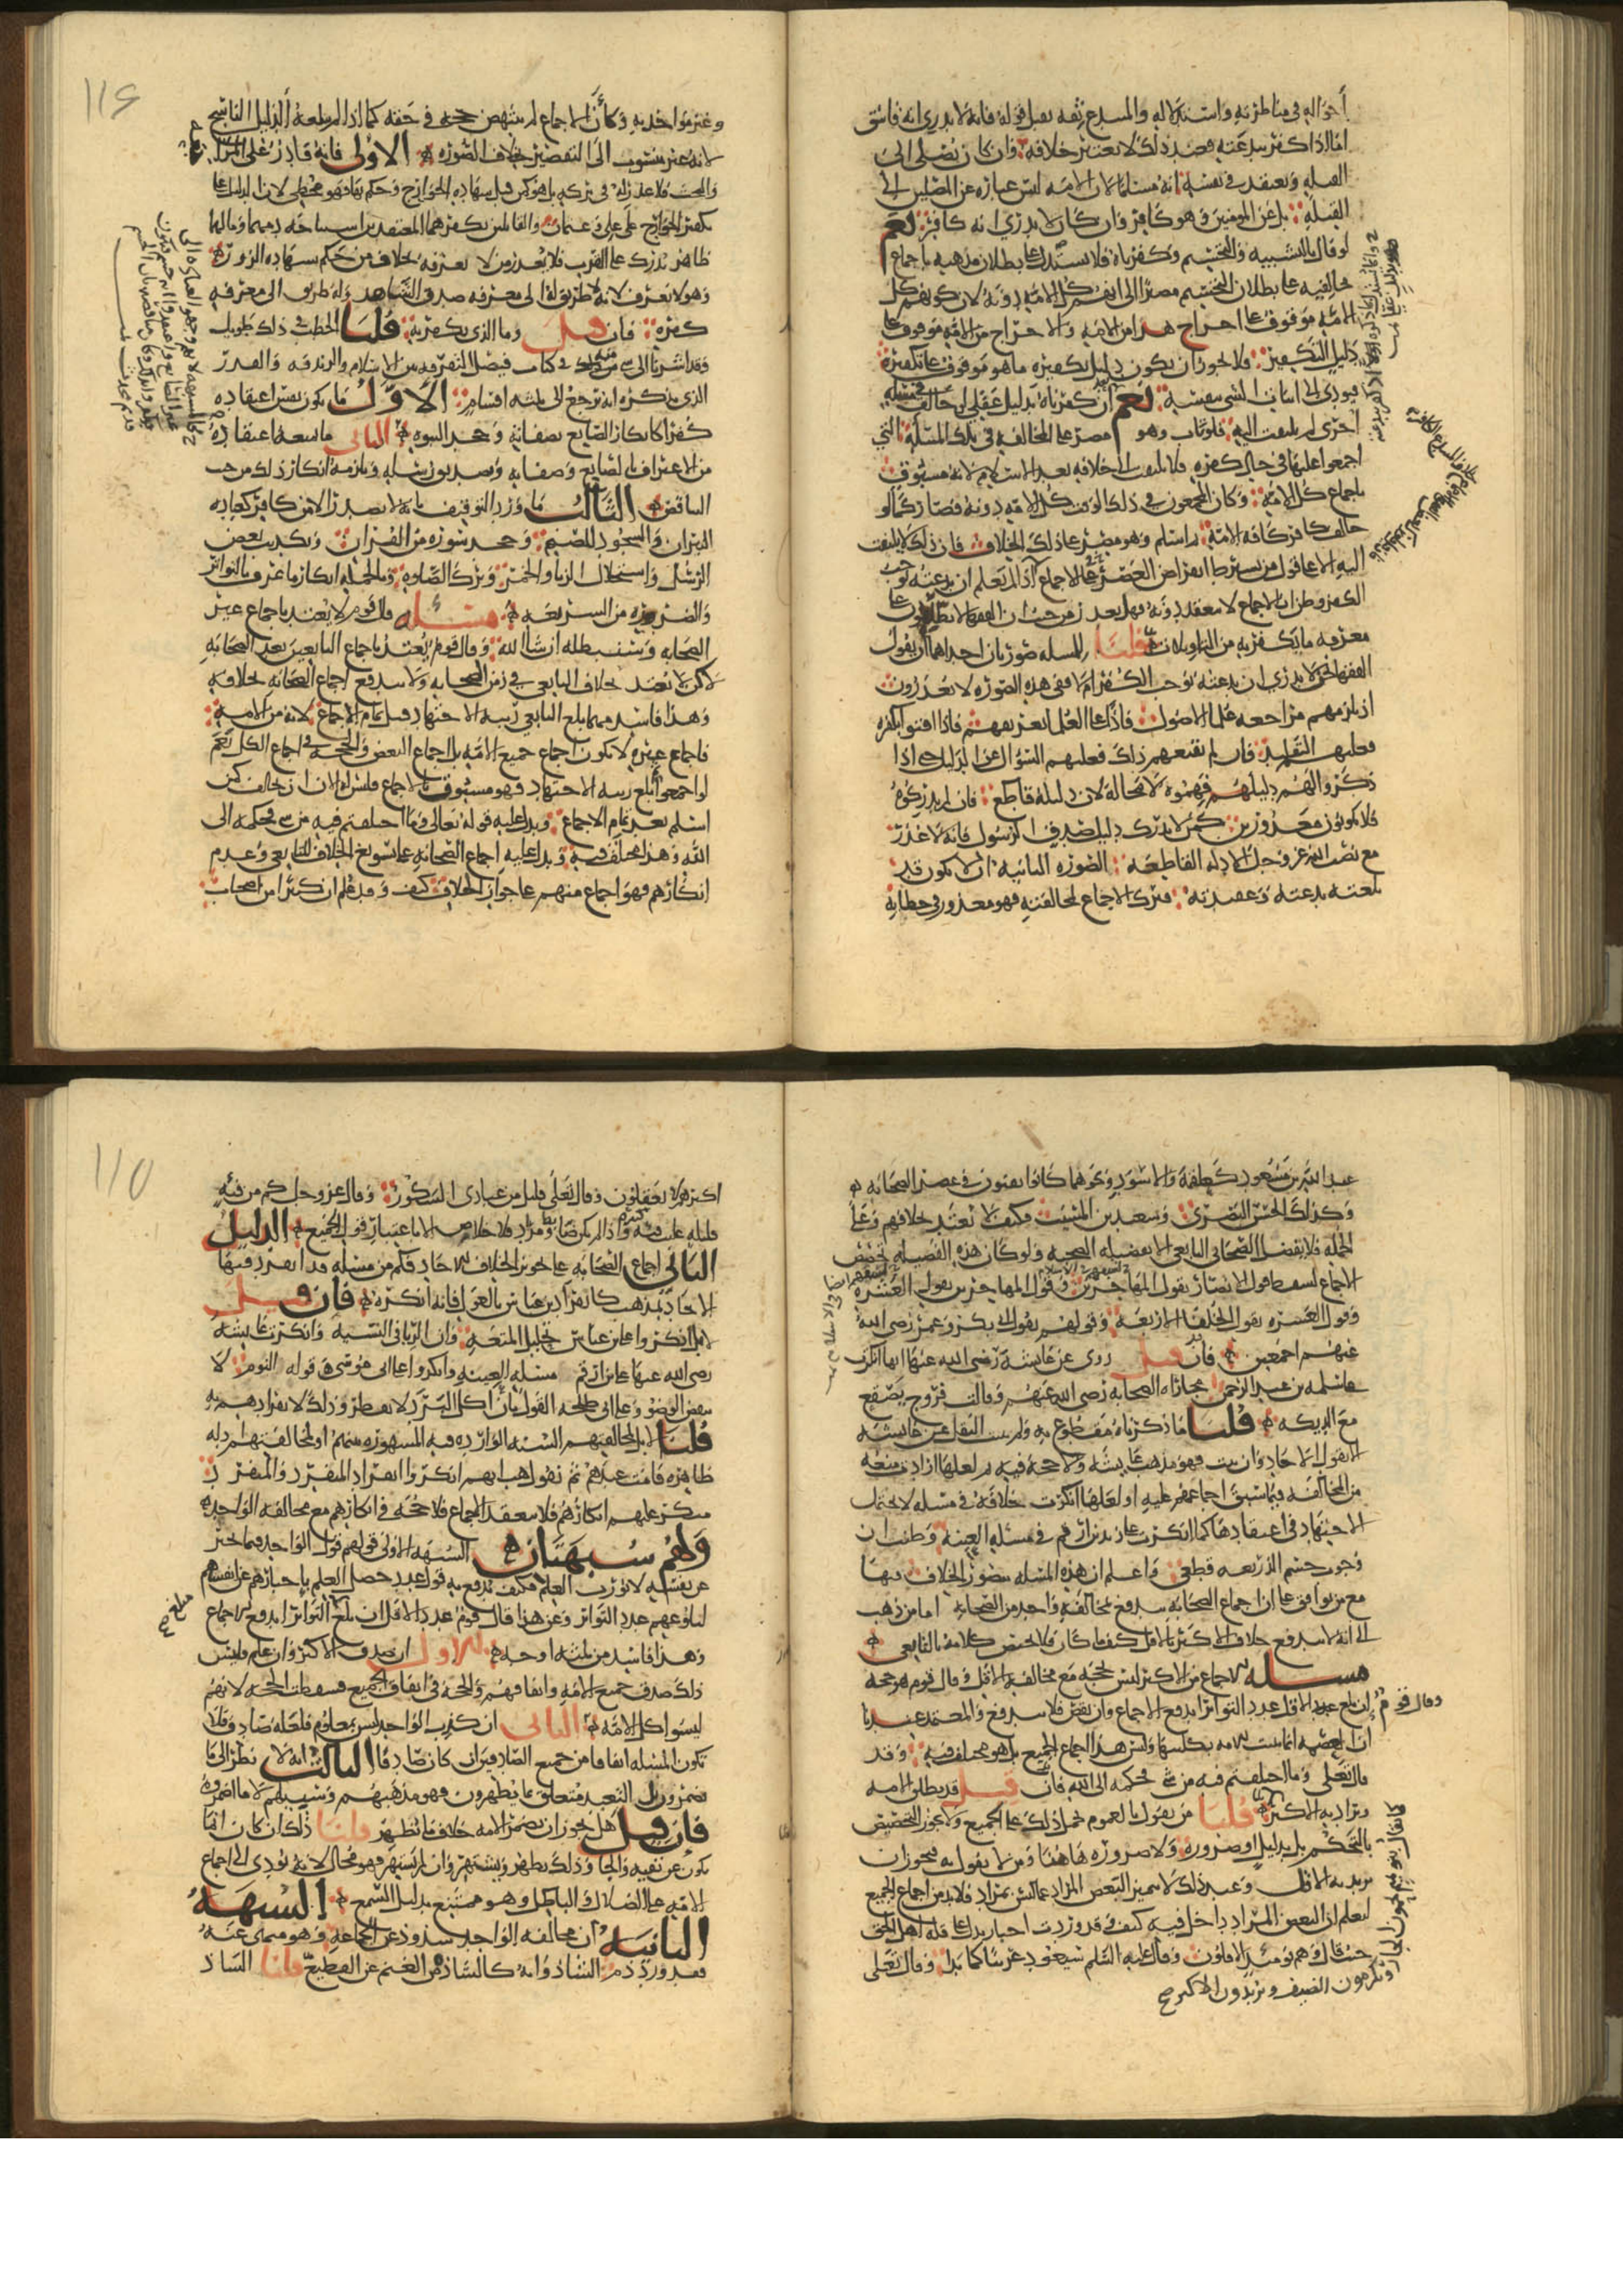 أحواله في مناظرته واستدلاله والمبتدع ثقة يقبل قوله فانه لا يدري انه فاسق
اما اذا كفر ببدعته فعند ذلك لا يعتبر خلافه وان كان يصلي الى
القبلة ويعتقد في نفسه انه مسلما لان الامة ليس عبارة عن المصلين الى
القبلة بل عن المؤمنين وهو كافر وان كان لا يدري انه كافر نعم
لو قال بالتشبيه والتجسيم وكفرناه فلا يستدل على بطلان مذهبه باجماع
مخالفيه على بطلان التجسيم مصيرا الى انهم كل الامة دونه لان كونهم كل
الامة موقوف على اخراج هذا من الامة والاخراج من الامة موقوف على
دليل التكفير فلا يجوز ان يكون دليل تكفيره ما هو موقوف على تكفيره
فيودي الى اثبات الشي بنفسه نعم ان كفرناه بدليل عقلي لو خالف في مسئلة
اخرى لم يلتفت اليه فلو تاب وهو مصر على المخالفة في تلك المسئلة التي
اجمعوا عليها في حال كفره فلا يلتفت الى خلافه بعد الاسلام لانه مسبوق
باجماع كل الامة وكان المجمعون في ذلك الوقت كل الامة دونه فصار كما لو
خالف كافر كافة الامة ثم اسلم وهو مصر على ذلك الخلاف فان ذلك لا يلتفت
اليه الا على قول من يشترط انقراض العصر في الاجماع
الكفر وظن ان الاجماع لا ينعقد دونه فهل يعذر من حيث ان الفقها لا يطلعون على
معرفة ما يكفر به من التاويلات قلنا للمسئلة صورتان احداهما ان يقول
الفقها نحن لا ندري ان بدعته توجب الكفر ام لا ففي هذه الصورة لا يعذرون
اذ يلزمهم مراجعة علما الاصول
فعليهم التقليد فان لم يقنعهم ذلك فعليهم السؤال عن الدليل حتى اذا
ذكروا لهم دليلهم فهموه لا محالة لان دليله قاطع فان لم يدركوه
فلا يكونون معذورين كمن لا يدرك دليل صدق الرسول فانه لا عذر
مع نصب الله عز وجل الادلة القاطعة الصورة الثانية ان لا يكون قد
بلغته بدعته وعقيدته فترك الاجماع لمخالفته فهو معذور في خطايه
١١٤
وغير مواخذ به وكان الاجماع لم ينتهض حجة في حقه كما اذا لم يبلغه الدليل الناسخ
لانه غير منسوب الى التقصير بخلاف الصورة الاولى فانه قادر على المراجعة
والبحث فلا عذر له في تركه
تكفير الخوارج على علي وعثمان
ظاهر يدرك على القرب فلا يعذر من لا يعرفه بخلاف من حكم بشهادة الزور
وهو لا يعرف لانه لا طريق له الى معرفة صدق الشاهد وله طريق الى معرفة
كفره فان قيل وما الذي يكفر به قلنا الخطب في ذلك طويل
وقد اشرنا الى شي منه في كتاب فيصل التفرقة بين الاسلام والزندقة والقدر
الذي نذكره انه يرجع الى ثلثة اقسام الاول ما يكون نفس اعتقاده
كفرا كانكار الصانع بصفاته وجحد النبوة الثاني ما يمنعه اعتقاده
من الاعتراف بالصانع وصفاته وتصديق رسله ويلزمه انكار ذلك من حيث
التناقض الثالث ما ورد التوقيف بانه لا يصدر الا من كافر كعبادة
النيران والسجود للصنم وجحد سورة من القران وتكذيب بعض
الرسل واستحلال الزنا والخمر وترك الصلوة وبالجملة انكار ما عرف بالتواتر
والضرورة من الشريعة مسئلة قال قوم لا يعتد باجماع غير
الصحابة وسنبطله ان شا الله وقال قوم يعتد باجماع التابعين بعد الصحابة
لاكن لا يعتد بخلاف التابعي في زمن الصحابة ولا يندفع اجماع الصحابة بخلافه
وهذا فاسد مهما بلغ التابعي رتبة الاجتهاد قبل تمام الاجماع لانه من الامة
فاجماع غيره لا يكون اجماع جميع الامة بل اجماع البعض والحجة في اجماع الكل نعم
لو اجمعوا ثم بلغ رتبة الاجتهاد فهو مسبوق بالاجماع فليس له الان ان يخالف كمن
اسلم بعد تمام الاجماع ويدل عليه قوله تعالى وما اختلفتم فيه من شي فحكمه الى
الله وهذا مختلف فيه ويدل عليه اجماع الصحابة على تسويغ الخلاف للتابعي وعدم
انكارهم فهو اجماع منهم على جواز الخلاف كيف وقد علم ان كثيرا من اصحاب
عبد الله بن مسعود كعلقمة والاسود وغيرهما كانوا يفتون في عصر الصحابة
وكذلك الحسن البصري وسعيد بن المسيب فكيف لا يعتد خلافهم وعلى
الجملة فلا يفضل الصحابي التابعي الا بفضيلة الصحبة ولو كان هذه الفضيلة تخصص
الاجماع لسقط قول الانصار بقول المهاجرين وقول المهاجرين بقول العشرة
وقول العشرة بقول الخلفا الاربعة وقولهم بقول ابي بكر وعمر رضي الله
عنهم اجمعين فان قيل روى عن عائشة رضي الله عنها انها انكرت
على ابي سلمة بن عبد الرحمن مجاراة الصحابة رضي الله عنهم وقالت فروج يصقع
مع الديكة قلنا ما ذكرناه مقطوع به ولم يثبت النقل عن عائشة
الا بقول الاحاد وان ثبت فهو مذهب عايشة ولا حجة فيه ثم لعلها ارادت منعه
من المخالفة فيما سبق اجماعهم عليه او لعلها انكرت خلافه في مسئلة لا تحتمل
الاجتهاد في اعتقادها كما انكرت على زيد بن ارقم في مسئلة العينة وظنت ان
وجوب حسم الذريعة قطعي واعلم ان هذه المسئلة يتصور الخلاف فيها
مع من يوافق على ان اجماع الصحابة يندفع بمخالفة واحد من الصحابة اما من ذهب
الى انه لا يندفع خلاف الاكثر بالاقل كيف ما كان فلا يختص كلامه بالتابعي
مسئلة الاجماع من الاكثر ليس بحجة مع مخالفة الاقل وقال قوم هو حجة
وقال قوم ان بلغ عدد الاقل عدد التواتر اندفع الاجماع وان نقص فلا يندفع والمعتمد عندنا
ان العصمة انما تثبت للامة بكليتها وليس هذا اجماع الجميع بل هو مختلف فيه وقد
قال تعلى وما اختلفتم فيه من شي فحكمه الى الله فان قيل قد يطلق الامة
ويراد به الاكثر قلنا من يقول بالعموم يحمل ذلك على الجميع ولا يجوز التخصيص
بالتحكم بل بدليل او ضرورة ولا ضرورة هاهنا ومن لا يقول به فيجوز ان
يريد به الاقل وعند ذلك لا يتميز البعض المراد عما ليس بمراد فلا بد من اجماع الجميع
ليعلم ان البعض المراد داخل فيه كيف وقد وردت اخبار يدل على قلة اهل الحق
حيث قال وهم يومئذ الاقلون وقال عليه السلم سيعود غريبا كما بدا وقال تعلى
١١٥
اكثرهم لا يعقلون وقال تعلى قليل من عبادي الشكور وقال عز وجل كم من فئة
قليلة غلبت فئة كثيرة واذا لم يكن ضابط ومراد فلا خلاص الا باعتبار قول الجميع الدليل
الثاني اجماع الصحابة على تجويز الخلاف للاحاد فكم من مسئلة قد انفرد فيها
الاحاد بمذهب كانفراد ابن عباس بالعول فانه انكره فان قيل
لا بل انكروا على ابن عباس تحليل المتعة وان الربا في النسية وانكرت عايشة
رضي الله عنها على ابن ارقم مسئلة العينة وانكروا على ابي موسى في قوله النوم لا
ينقض الوضو وعلى ابي طلحة القول بان اكل البرد لا يفطر وذلك لانفرادهم به
قلنا لا بل لمخالفتهم السنة الواردة فيه المشهورة بينهم او لمخالفتهم ادلة
ظاهرة قامت عندهم ثم نقول هب انهم انكروا انفراد المنفرد والمنفرد
منكر عليهم انكارهم فلا ينعقد الاجماع فلا حجة في انكارهم مع مخالفة الواحد
ولهم شبهتان الشبهة الاولى قولهم قول الواحد فيما يخبر
عن نفسه لا يورث العلم فكيف يندفع به قول عدد حصل العلم باخبارهم عن انفسهم
لبلوغهم عدد التواتر وعن هذا قال قوم عدد الاقل ان بلغ التواتر اندفع الاجماع
وهذا فاسد من ثلثة اوجه الاول ان صدق الاكثر وان علم فليس
ذلك صدق جميع الامة واتفاقهم والحجة في اتفاق الجميع فسقطت الحجة لانهم
ليسوا كل الامة الثاني ان كذب الواحد ليس بمعلوم فلعله صادق فلا
تكون المسئلة اتفاقا من جميع الصادقين ان كان صادقا الثالث انه لا نظر الى ما
يضمرون بل التعبد متعلق بما يظهرون فهو مذهبهم وسبيلهم لا ما اضمروه
فان قيل هل يجوز ان تضمر الامة خلاف ما تظهر قلنا ذلك ان كان انما
يكون عن تقية والجا وذلك يظهر ويشتهر وان لم يشتهر فهو محال لانه يودي الى اجماع
الامة على الضلال والباطل وهو ممتنع بدليل السمع الشبهة
الثانية ان مخالفة الواحد شذوذ عن الجماعة وهو منهي عنه
فقد ورد ذم الشاذ وانه كالشاذ من الغنم عن القطيع قلنا الشاذ